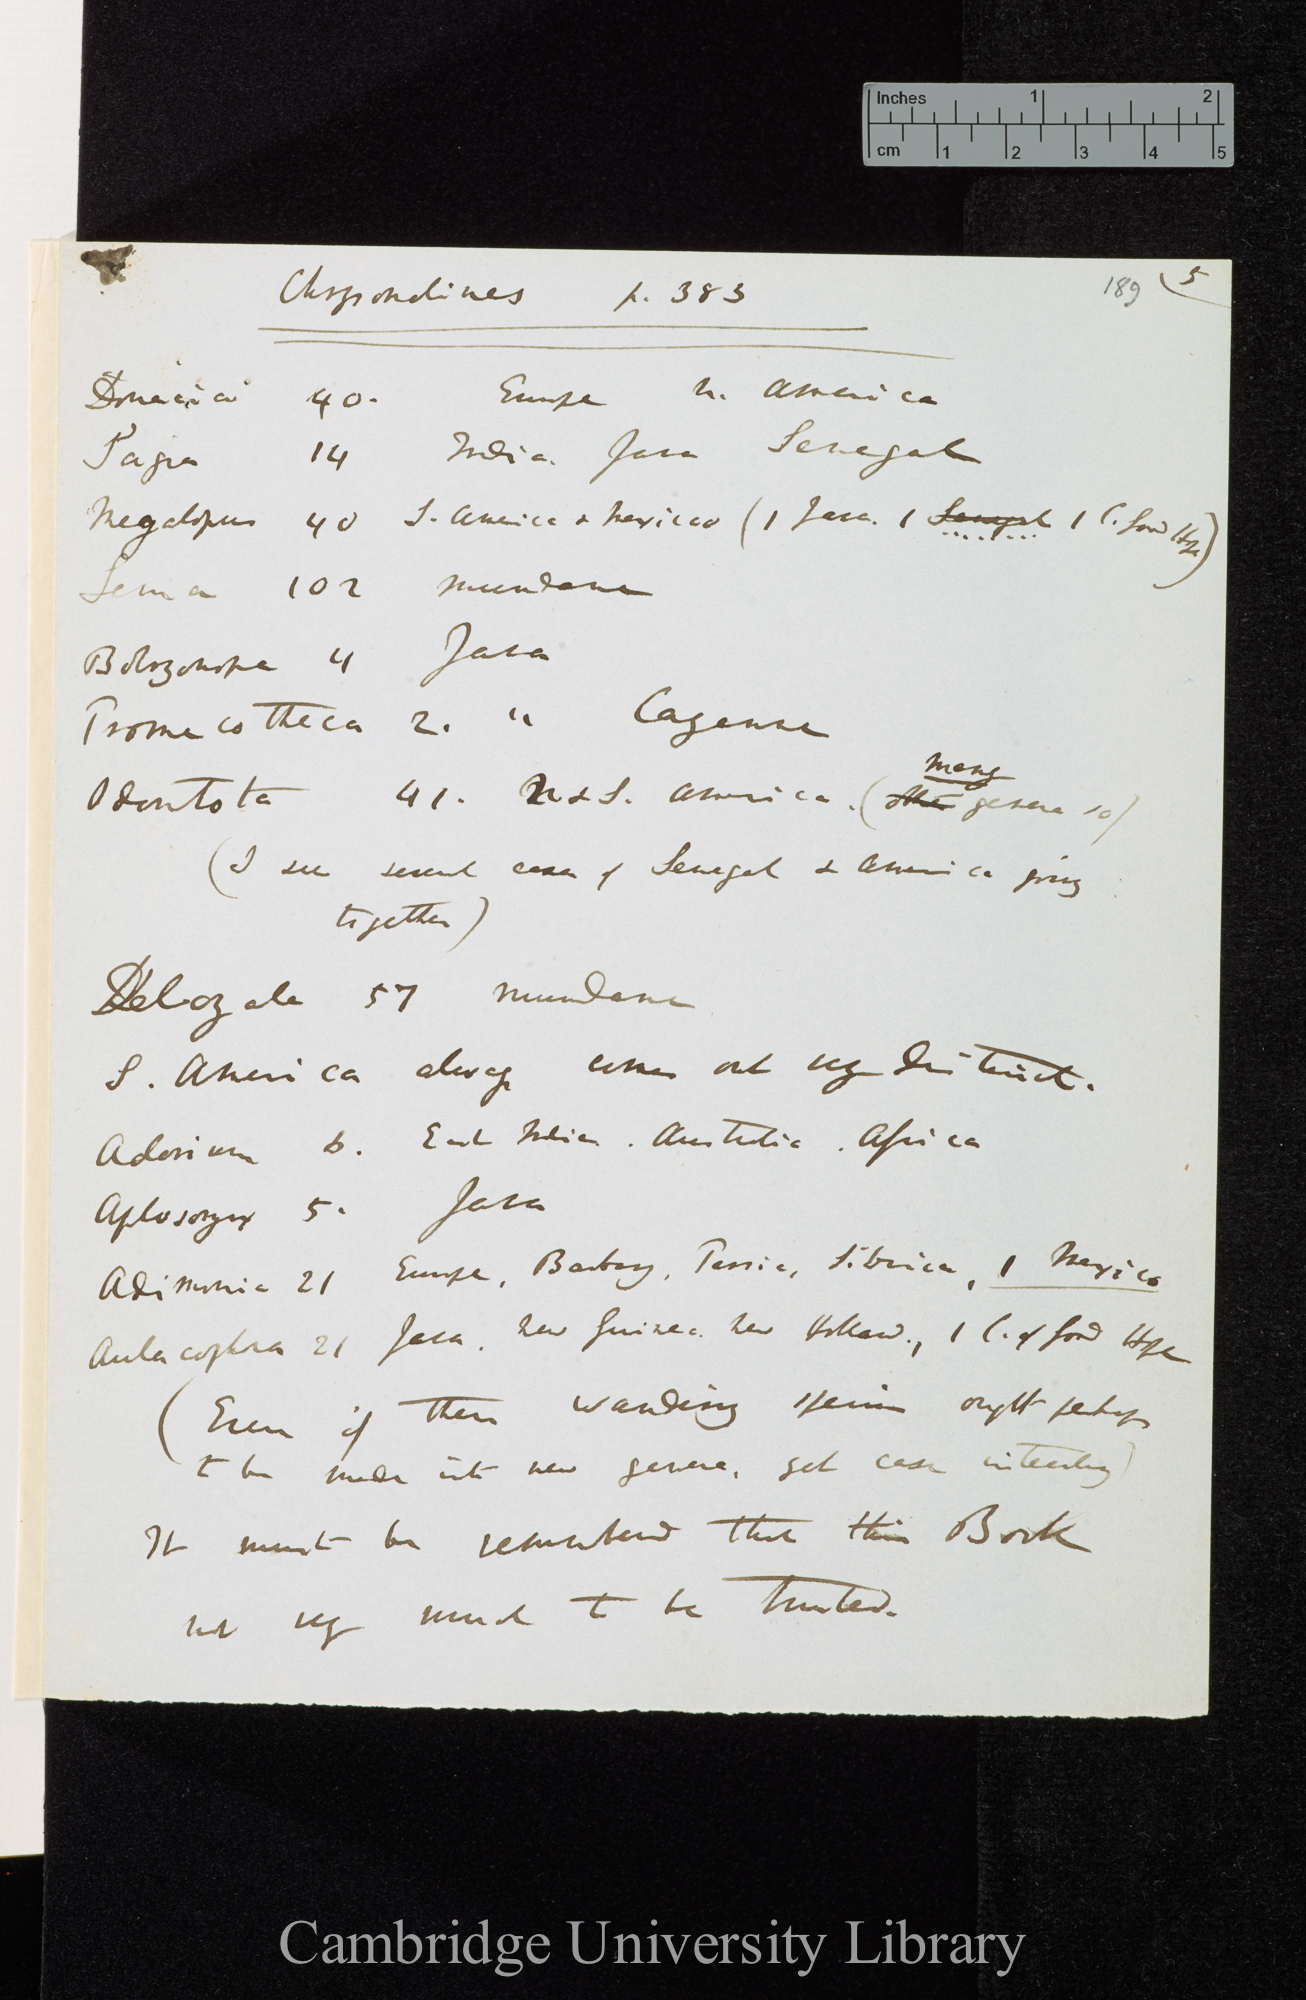 Inches 1 2
cm 1 2 3 4 5
189 5
Chrysomelines p. 383
Donaciæ 40. Europe N. America
Sagra 14 India. Java Senegal
Megalopus 40 S. America & Mexico (1 Java. 1 Senegal 1 C. Good Hope)
Lema 102 mundane
Botryonopa 4 Java
Promecotheca 2. " Cayenne
many
Odontota 41. N & S. America. (other genera so)
(I see several cases of Senegal & America going
together)
57 mundane
S. America always comes out very distinct.
Adorium 6. East Indies. Australia. Africa
Aplosonyx 5. Java
Adimonia 21 Europe, Barbary, Persia, Siberica, 1 Mexico
Aulacophora 21 Java. New Guinea. New Holland., 1 C. of Good Hope
(Even if these wandering species ought perhaps
to be made into new genera, yet case interesting)
It must be remembered that this Book
not very much to be trusted.
Cambridge University Library